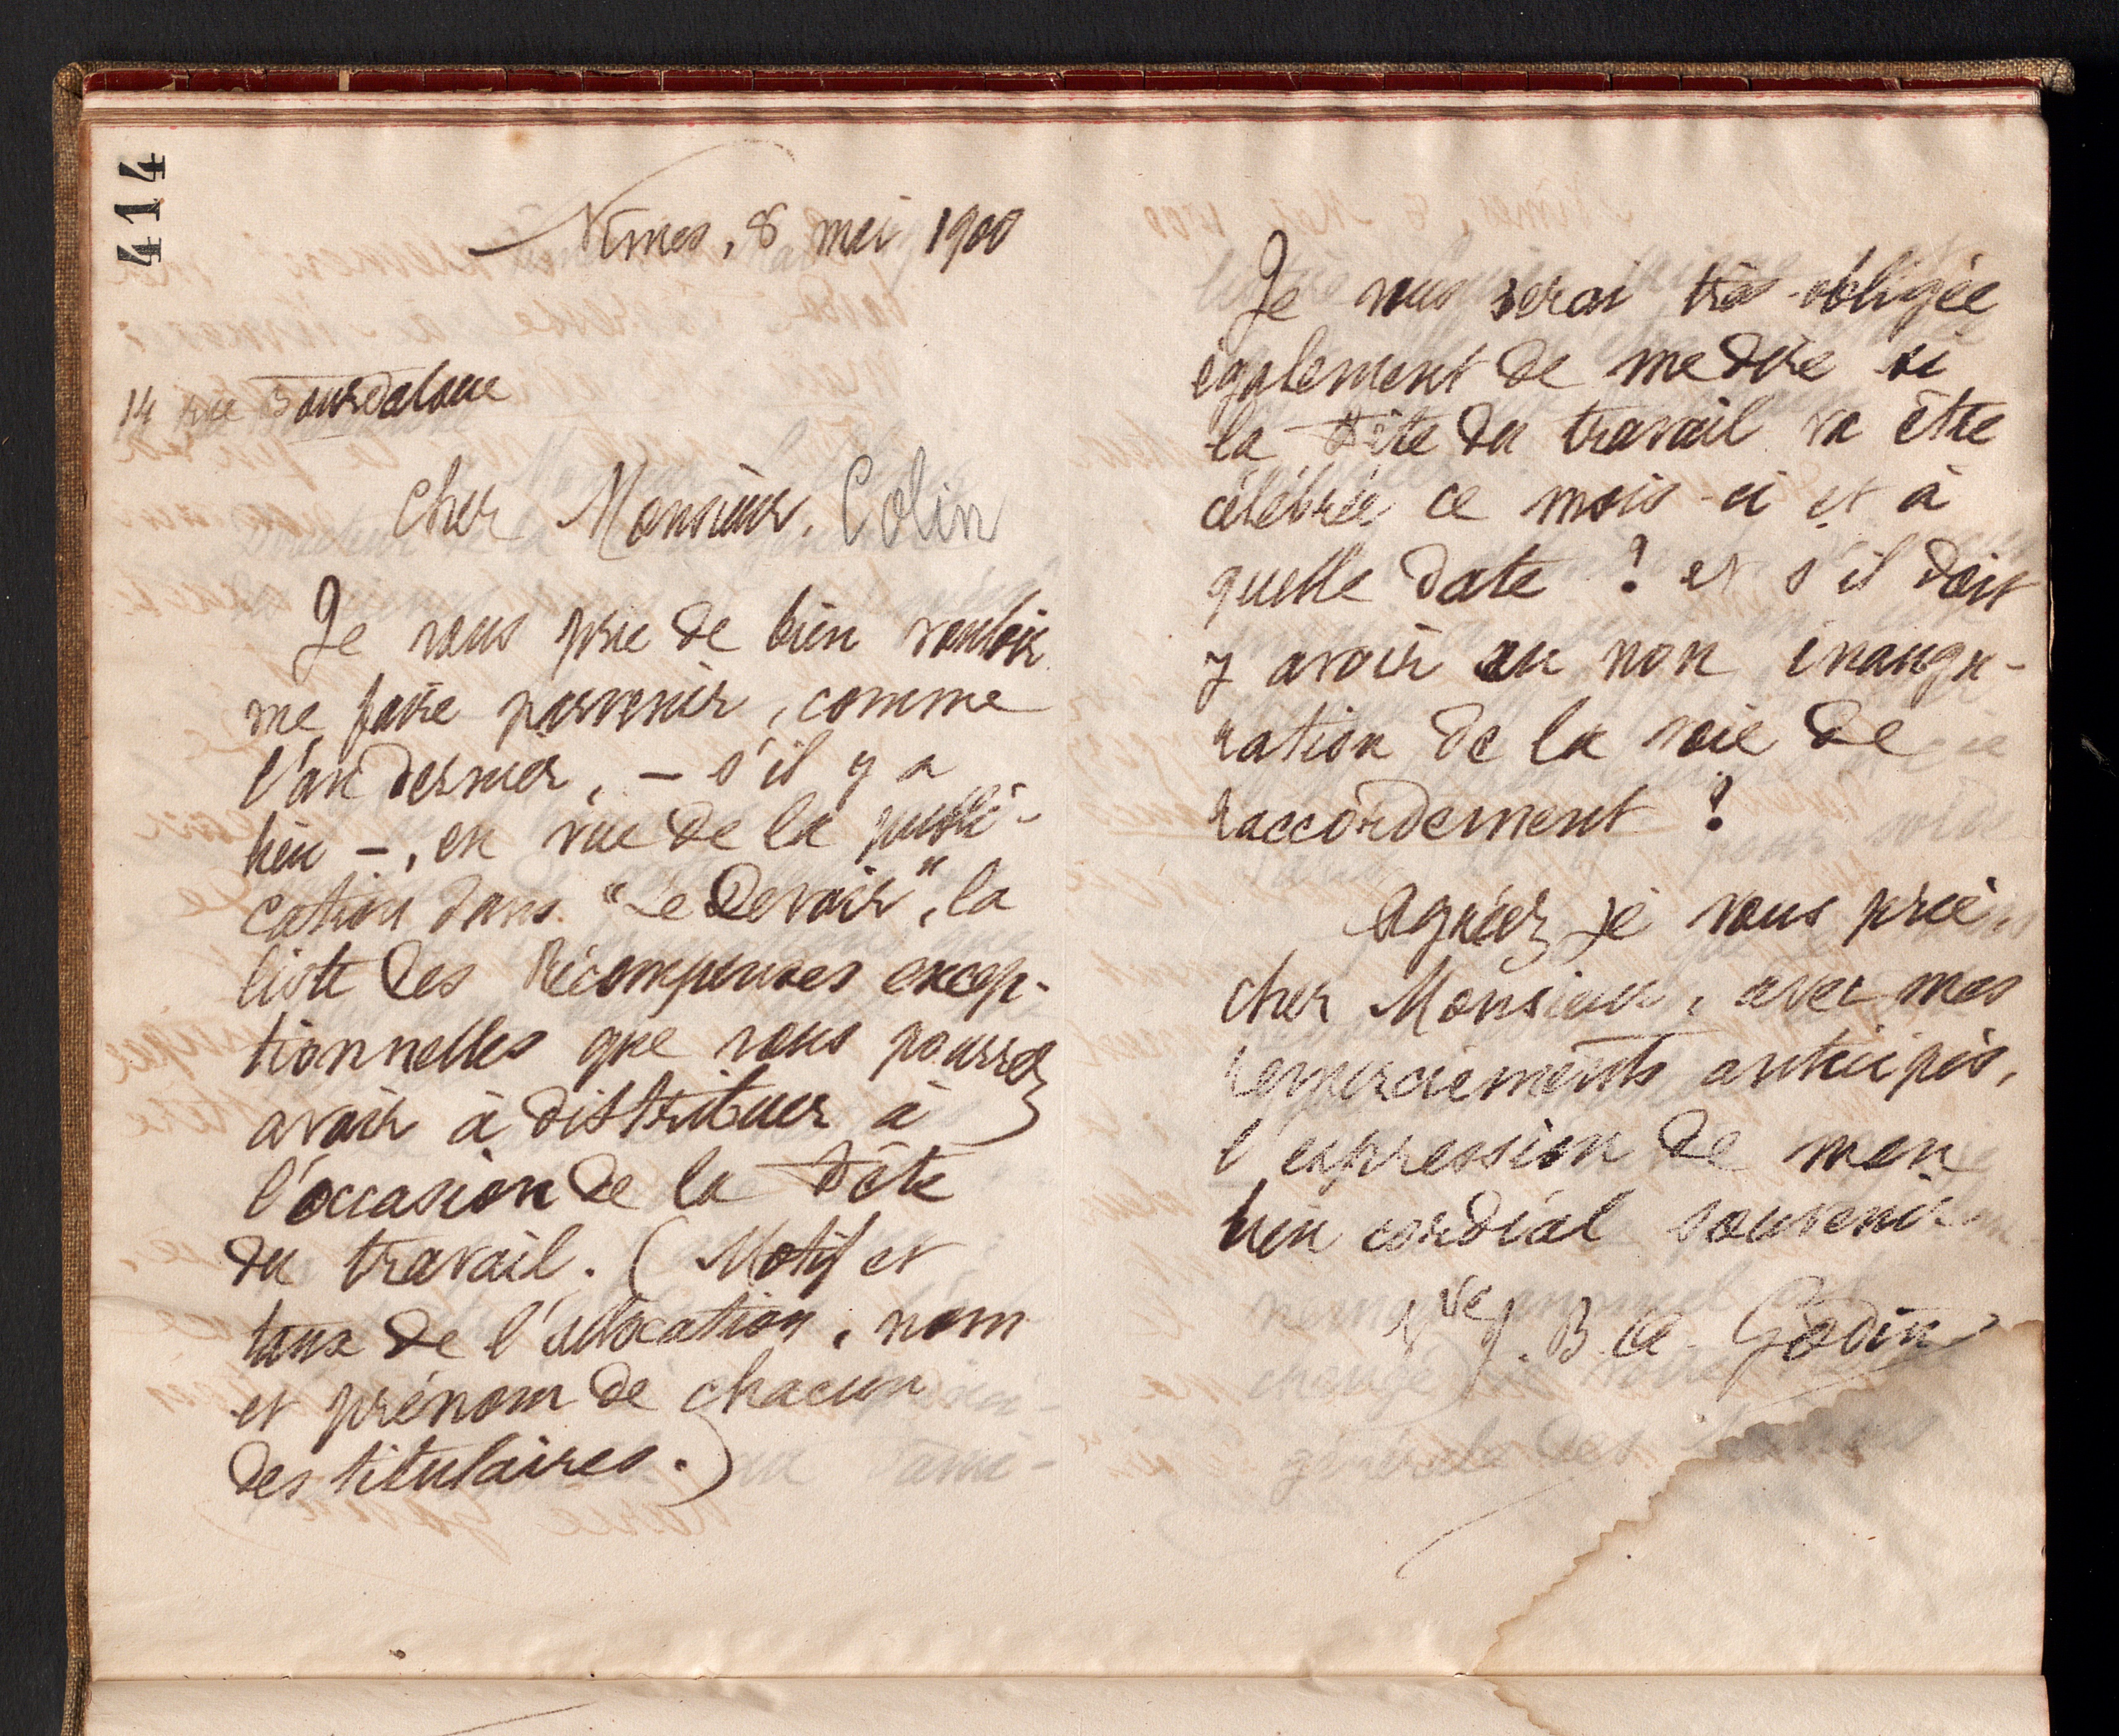 414
Nîmes, 8 mai 1900
14 rue Bourdaloue
Cher Monsieur, Colin
Je vous prie de bien vouloir
me faire parvenir, comme
l'an dernier, – s'il y a
lieu –, en vue de la publi-
cation dans "Le Devoir", la
liste des Récompenses excep-
tionnelles que vous pourrez
avoir à distribuer à
l'occasion de la Fête
du travail. (Motif et
taux de l'allocation, nom
et prénom de chacun
des titulaires.)
Je vous serai très obligée
également de me dire si
la Fête du travail va être
célébrée ce mois-ci et à
quelle date ? et s'il doit
y avoir ou non inaugu-
ration de la voie de
raccordement ?
Agréez je vous prie,
cher Monsieur, avec mes
remerciements anticipés,
l'expression de mon
bien cordial souvenir
Vve J. B. A. Godin